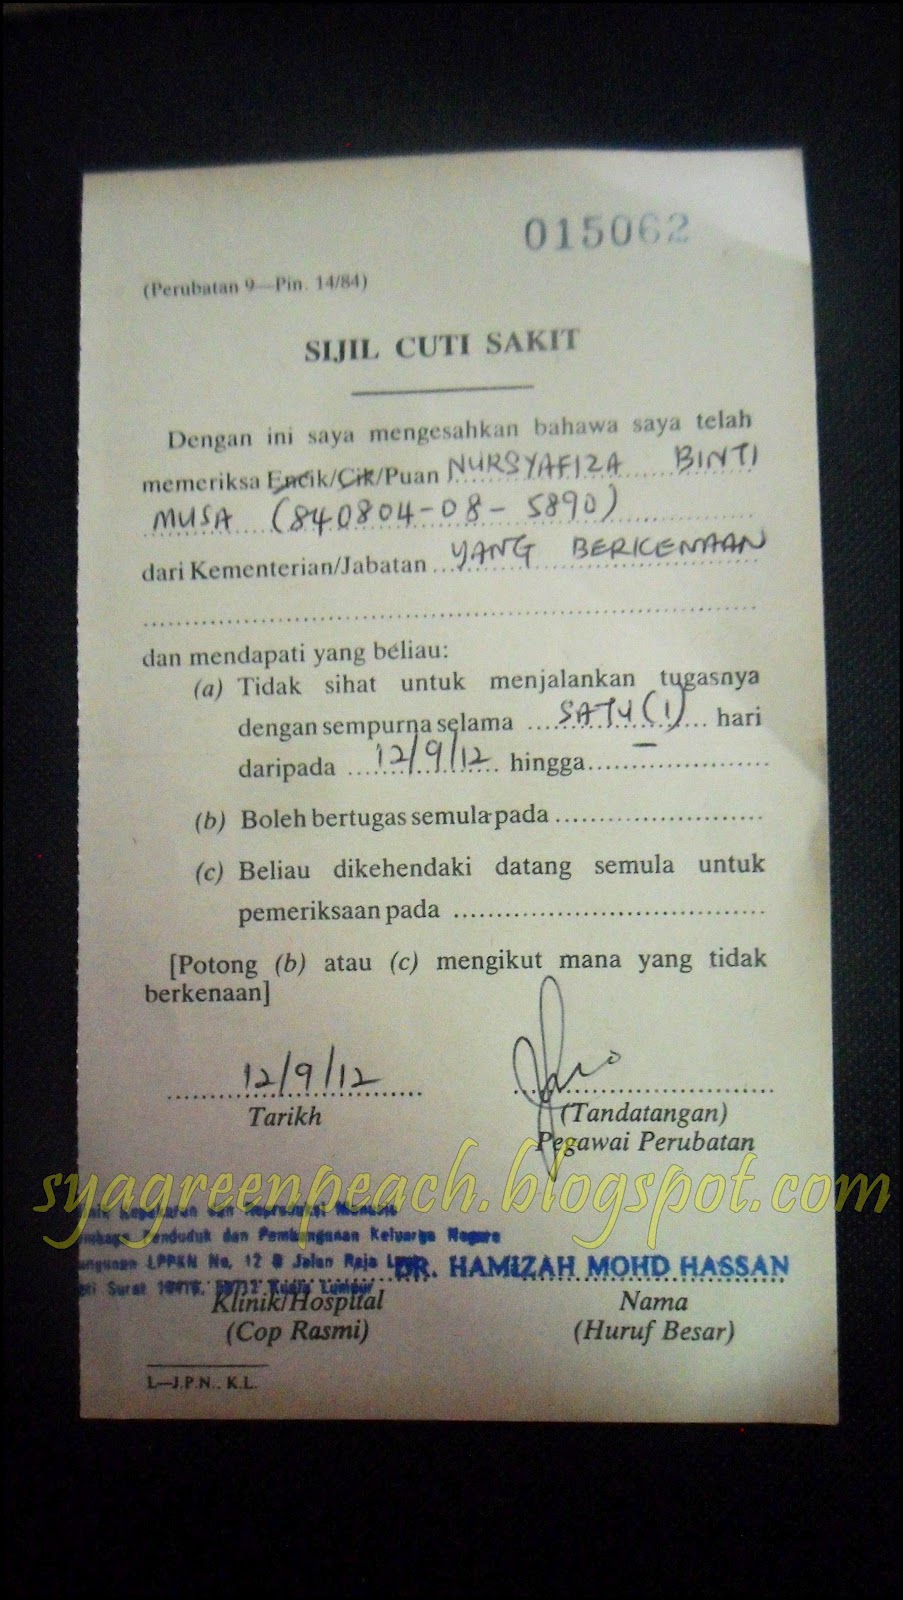 015062
(Perubatan 9—Pin. 14/84)
SIJIL CUTI SAKIT
Dengan ini saya mengesahkan bahawa saya telah
memeriksa Encik/Cik/Puan NURSYAFIZA BINTI
MUSA (840804-08-5890)
dari Kementerian/Jabatan YANG BERKENAAN
dan mendapati yang beliau:
(a) Tidak sihat untuk menjalankan tugasnya
dengan sempurna selama SATU (1) hari
daripada 12/9/12 hingga –
(b) Boleh bertugas semula pada
(c) Beliau dikehendaki datang semula untuk
pemeriksaan pada
[Potong (b) atau (c) mengikut mana yang tidak
berkenaan]
12/9/12
Tarikh
(Tandatangan)
Pegawai Perubatan
syagreenpeach.blogspot.com
dan
Penduduk dan Pembangunan Keluarga Negara
LPPKN No. 12 B Jalan Raja
Surat Kuala Lumpur
DR. HAMIZAH MOHD HASSAN
Klinik/Hospital
(Cop Rasmi)
Nama
(Huruf Besar)
L—J.P.N., K.L.